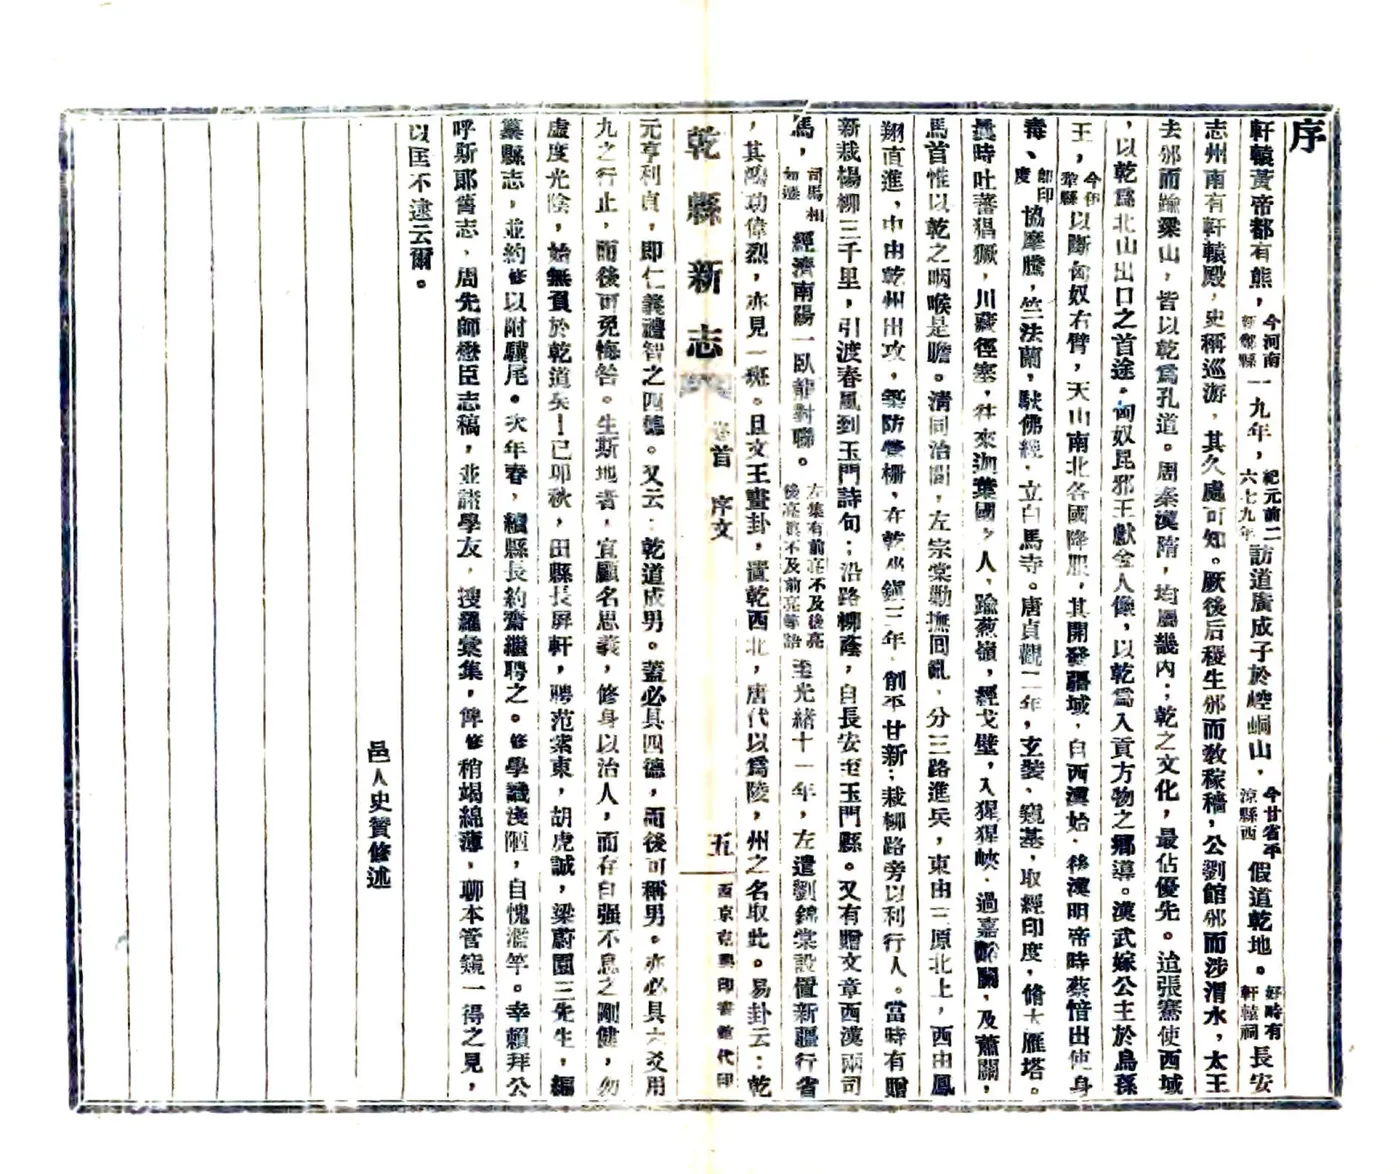 序
軒轅黃帝都有熊，今河南新鄭縣一九年，紀元前二六七九年訪道廣成子於崆峒山，今甘省平涼縣西假道乾地。好時有軒轅祠長安
志州南有軒轅殿，史稱巡游，其久處可知。厥後后稷生邠而敎稼穡，公劉館邠而涉渭水，太王
去邠而踰梁山，皆以乾爲孔道。周秦漢隋，均屬畿內；乾之文化，最佔優先。迨張騫使西域
，以乾爲北山出口之首途。匈奴昆邪王獻金人像，以乾爲入貢方物之鄉導。漢武嫁公主於烏孫
王，今伊犂縣以斷匈奴右臂，天山南北各國降服，其開發疆域，自西漢始。移漢明帝時蔡愔出使身
毒、卽印度協摩騰，竺法蘭，馱佛經，立白馬寺。唐貞觀二年，玄裝、窺基，取經印度，脩大雁塔。
其時吐蕃猖獗，川藏徑塞，往來迦葉國，人，踰葱嶺，經戈壁，入猩猩峽，過嘉峪關，及蕭關，
馬首惟以乾之咽喉是瞻。清同治間，左宗棠勦撫囘亂，分三路進兵，東由三原北上，西由鳳
翔直進，中由乾州出攻，築防營柵，在乾坐鎭三年，創平甘新；栽柳路旁以利行人。當時有贈
新栽楊柳三千里，引渡春風到玉門詩句；沿路柳蔭，自長安至玉門縣。又有贈文章西漢兩司
馬，司馬相如遷經濟南陽一臥龍對聯。左集有前亮不及後亮後亮眞不及前亮等語至光緒十一年，左遣劉錦棠設置新疆行省
，其鴻功偉烈，亦見一斑。且文王畫卦，置乾西北，唐代以爲陵，州之名取此。易卦云：乾
乾縣新志 卷首 序文 五 西京克興印書館代印
元亨利貞，卽仁義禮智之四德。又云：乾道成男。蓋必具四德，而後可稱男。亦必具六爻用
九之行止，而後可免悔咎。生斯地者，宜顧名思義，修身以治人，而存自强不息之剛健，勿
虛度光陰，始無負於乾道矣！已卯秋，田縣長屏軒，聘范紫東，胡虎誠，梁蔚園三先生，編
纂縣志，並約修以附驥尾。次年春，續縣長約齋繼聘之。修學識淺陋，自愧濫竽。幸賴拜公
呼斯郎舊志，周先師懋臣志稿，並諸學友，搜羅彙集，俾修稍竭綿薄，聊本管窺一得之見，
以匡不逮云爾。
邑人史贊修述